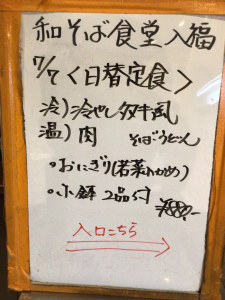 和そば食堂入福
7/7<日替定食>
冷)冷やし
温)肉 そばうどん
・おにぎり(若菜わかめ)
・小鉢 2品付
¥880,-
入口こちら